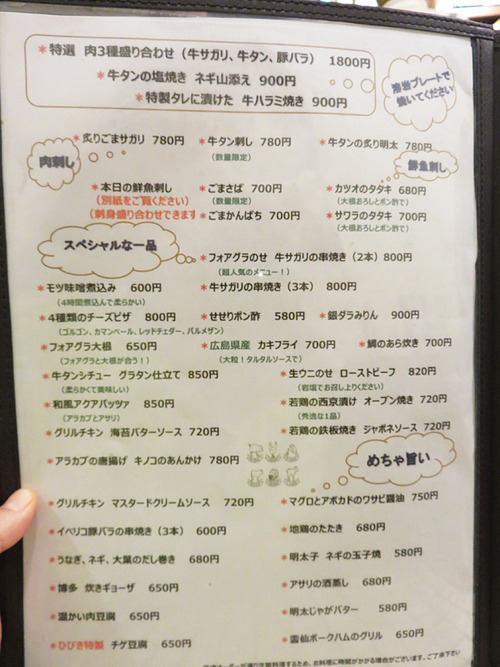 *特選 肉3種盛り合わせ（牛サガリ、牛タン、豚バラ） 1800円
*牛タンの塩焼き ネギ山添え 900円
*特製タレに漬けた 牛ハラミ焼き 900円
溶岩プレートで
焼いてください
肉刺し
*炙りごまサガリ 780円 *牛タン刺し 780円 *牛タンの炙り明太 780円
(数量限定)
鮮魚刺し
*本日の鮮魚刺し *ごまさば 700円 *カツオのタタキ 680円
(別紙をご覧ください) (数量限定) (大根おろしとポン酢で)
(刺身盛り合わせできます *ごまかんぱち 700円 *サワラのタタキ 700円
(大根おろしとポン酢で)
スペシャルな一品
*フォアグラのせ 牛サガリの串焼き（2本）800円
(超人気のメニュー！)
*モツ味噌煮込み 600円 *牛サガリの串焼き（3本） 800円
(4時間煮込んで柔らかい)
*4種類のチーズピザ 800円 *せせりポン酢 580円 *銀ダラみりん 900円
(ゴルゴン、カマンベール、レッドチェダー、パルメザン)
*フォアグラ大根 650円 *広島県産 カキフライ 700円 *鯛のあら炊き 700円
(フォアグラと大根が合う！) (大粒！タルタルソースで)
*牛タンシチュー グラタン仕立て 850円 *生ウニのせ ローストビーフ 820円
(柔らかくて美味しい) (岩塩でお召し上りください)
*和風アクアパッツァ 850円 *若鶏の西京漬け オーブン焼き 720円
(アラカブとアサリ) (秀逸な1品)
*グリルチキン 海苔バターソース 720円 *若鶏の鉄板焼き ジャポネソース 720円
*アラカブの唐揚げ キノコのあんかけ 780円
めちゃ旨い
*グリルチキン マスタードクリームソース 720円 *マグロとアボカドのワサビ醤油 750円
*イベリコ豚バラの串焼き（3本） 600円 *地鶏のたたき 680円
*うなぎ、ネギ、大葉のだし巻き 680円 *明太子 ネギの玉子焼 580円
*博多 炊きギョーザ 650円 *アサリの酒蒸し 680円
*温かい肉豆腐 650円 *明太じゃがバター 580円
*ひびき特製 チゲ豆腐 650円 *雲仙ポークハムのグリル 650円
通りお料理するため、お料理に時間がかかる場合がございます。ご了承下さい